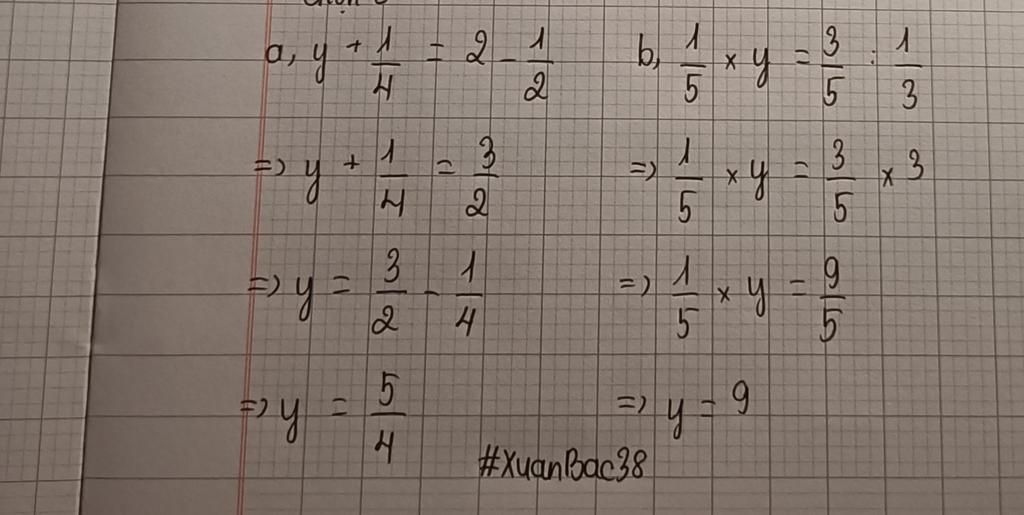 a, y + 1/4 = 2 - 1/2
=> y + 1/4 = 3/2
=> y = 3/2 - 1/4
=> y = 5/4
b, 1/5 × y = 3/5 : 1/3
=> 1/5 × y = 3/5 × 3
=> 1/5 × y = 9/5
=> y = 9
#XuanBac38